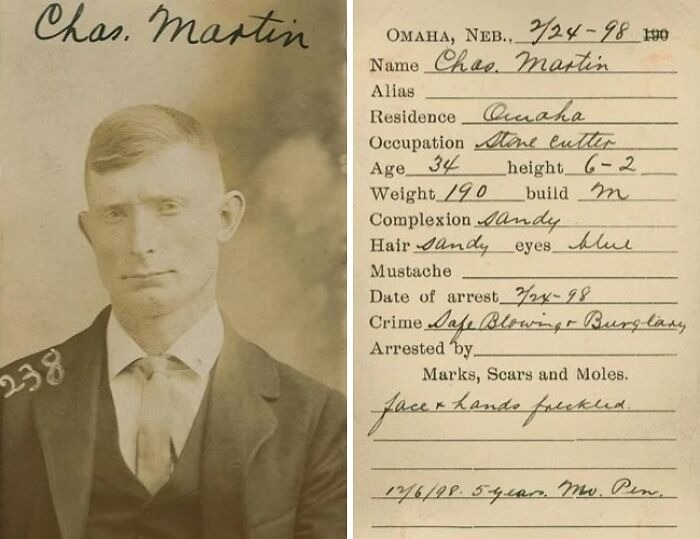 Chas. Martin
238
OMAHA, NEB., 2/24-98 190
Name Chas. Martin
Alias
Residence Omaha
Occupation Stone cutter
Age 34 height 6-2
Weight 190 build M
Complexion Sandy
Hair Sandy eyes blue
Mustache
Date of arrest 2/24-98
Crime Safe Blowing & Burglary
Arrested by
Marks, Scars and Moles.
face & hands freckled.
12/6/98. 5 years. Mo. Pen.